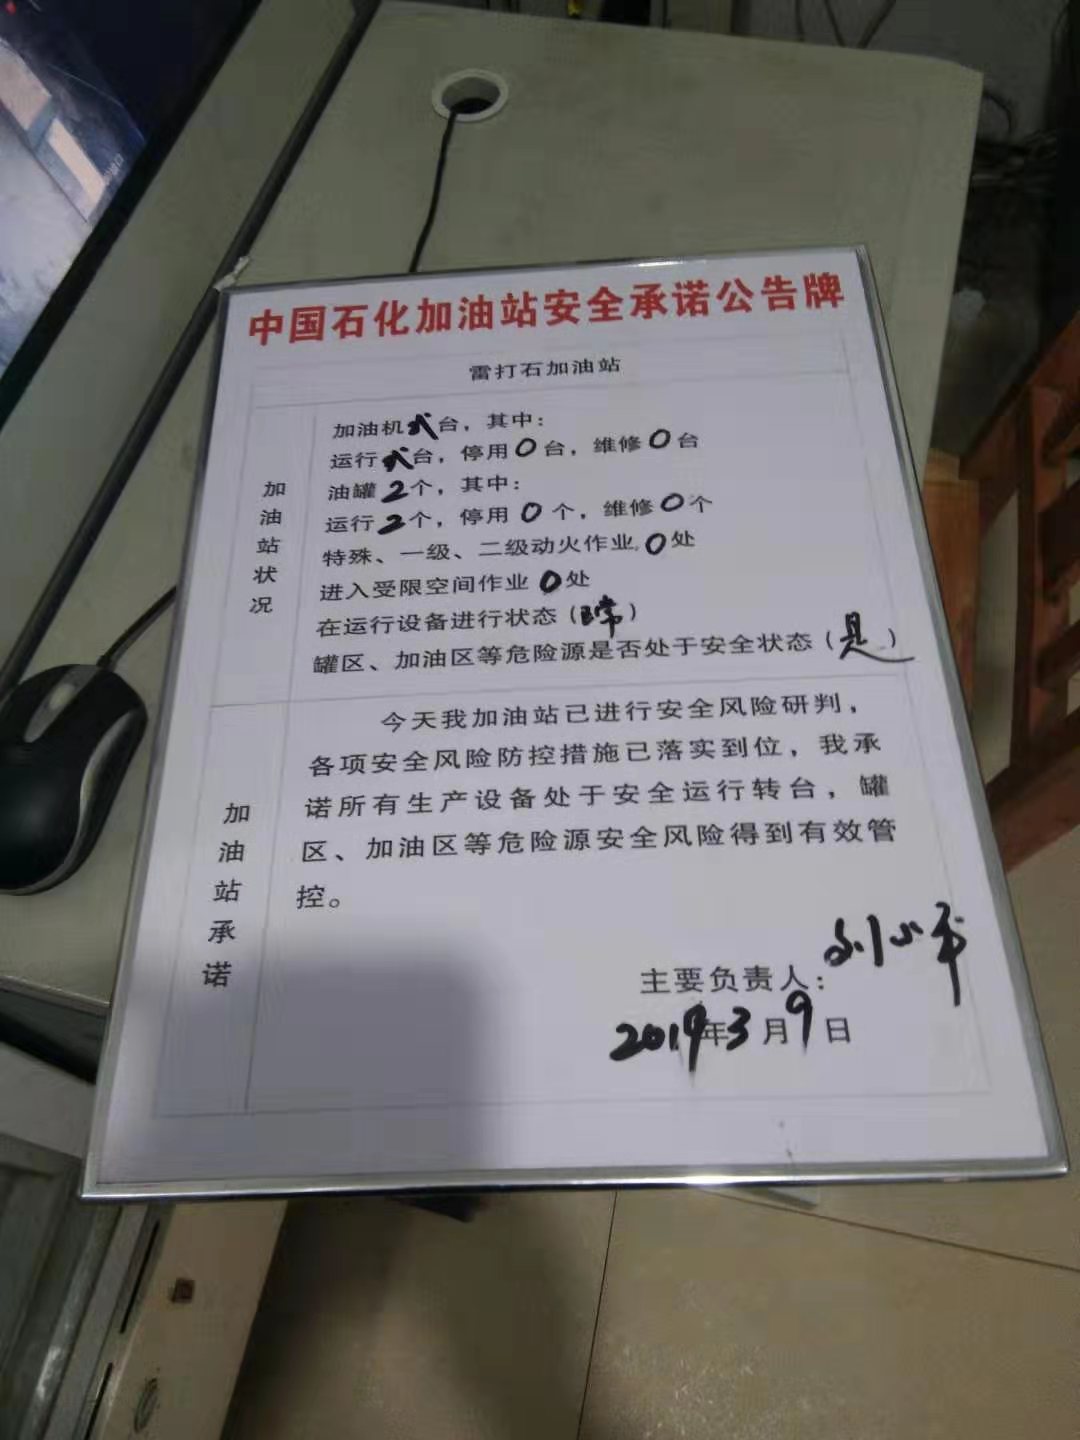 中国石化加油站安全承诺公告牌
雷打石加油站
加油站状况
加油机 台，其中：
运行 台，停用0台，维修0台
油罐2个，其中：
运行2个，停用0个，维修0个
特殊、一级、二级动火作业0处
进入受限空间作业0处
在运行设备进行状态（正常）
罐区、加油区等危险源是否处于安全状态（是）
加油站承诺
今天我加油站已进行安全风险研判，
各项安全风险防控措施已落实到位，我承
诺所有生产设备处于安全运行转台，罐
区、加油区等危险源安全风险得到有效管
控。
主要负责人：刘小平
2019年3月9日